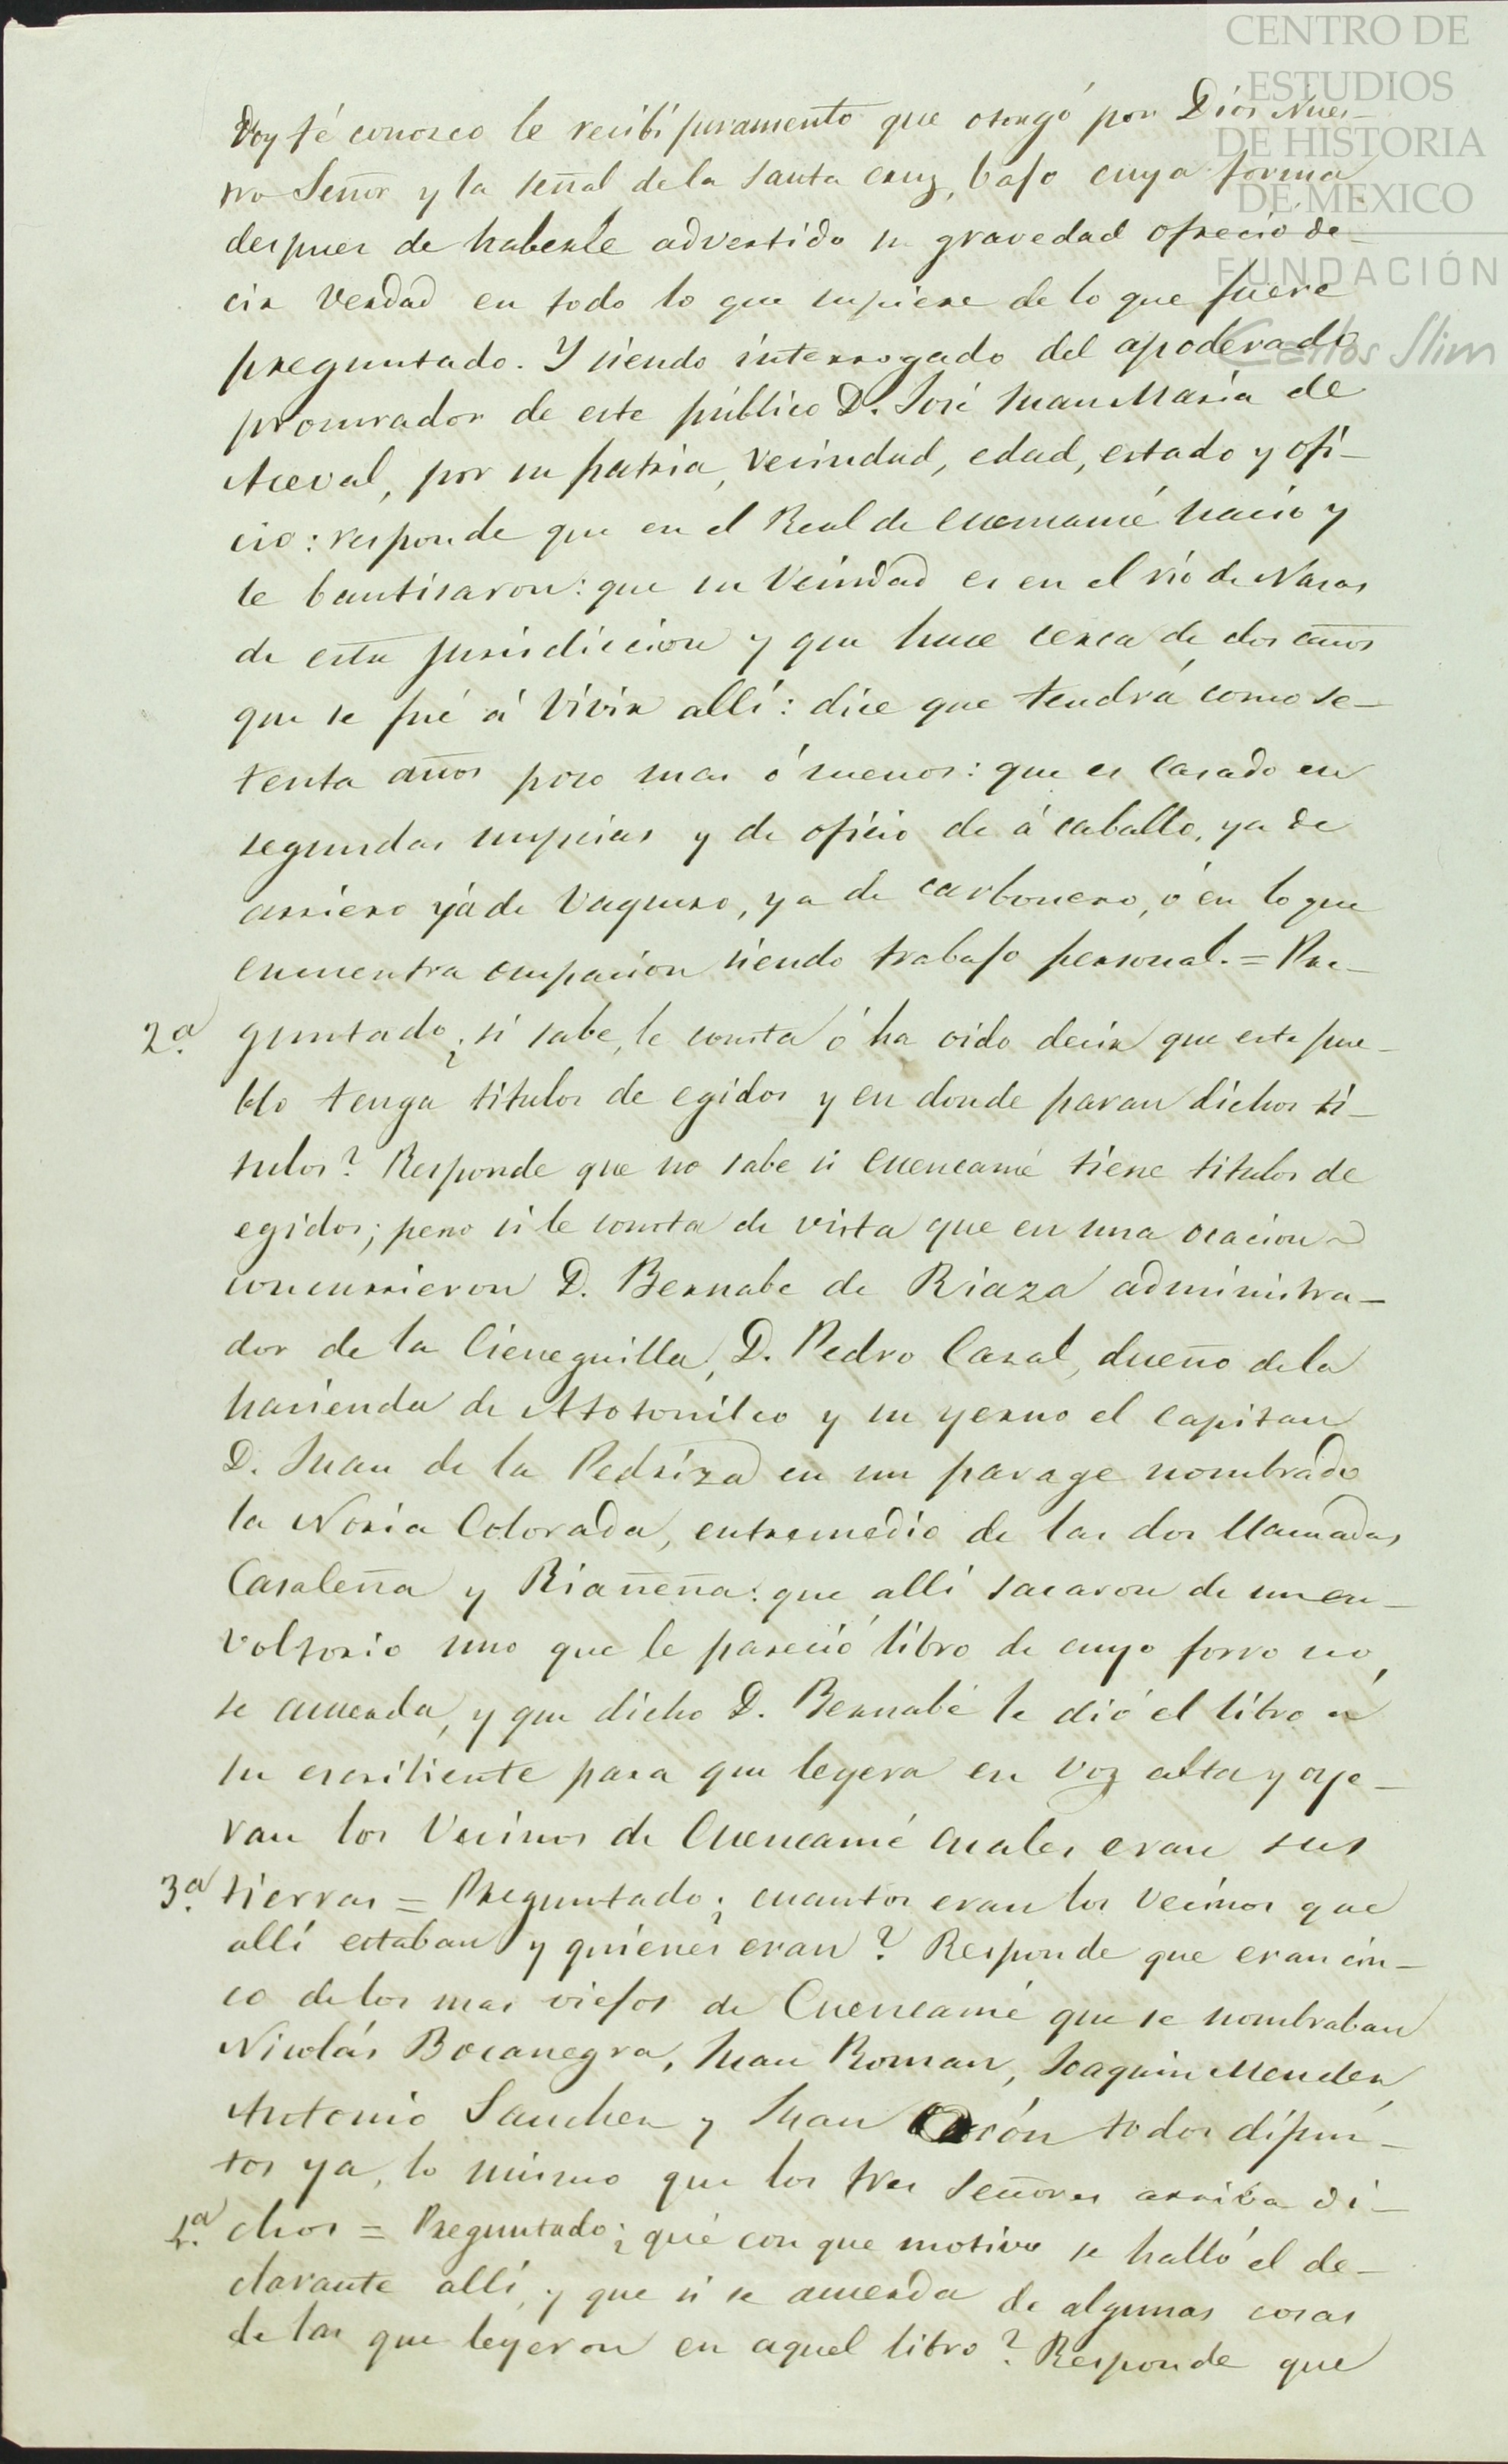 CENTRO DE
ESTUDIOS
DE HISTORIA
DE MEXICO
FUNDACIÓN
Carlos Slim
doy fé conosco le recibí juramento que otorgó por Dios Nues-
tro Señor y la señal de la Santa cruz, bajo cuya forma
despues de haberle advertido su gravedad ofreció de-
cir verdad en todo lo que supiere de lo que fuere
preguntado. Y siendo interrogado del apoderado
procurador de este público D. José Juan María de
Aceval, por su patria, vecindad, edad, estado y ofi-
cio: responde que en el Real de Cuencamé nació y
le bautisaron: que su vecindad es en el rio de Nasas
de esta jurisdiccion y que hace cerca de dos años
que se fué á vivir allí: dice que tendrá como se-
tenta años poco mas ó menos: que es casado en
segundas nupcias y de oficio de á caballo, ya de
arriero yá de vaquero, ya de carbonero, ó en lo que
encuentra ocupacion siendo trabajo personal. = Pre-
2.ª guntado ¿si sabe, le consta ó ha oido decir que este pue-
blo tenga titulos de egidos y en donde paran dichos tí-
tulos? Responde que no sabe si Cuencamé tiene titulos de
egidos; pero si le consta de vista que en una ocacion
concurrieron D. Bernabe de Riaza administra-
dor de la Cieneguilla, D. Pedro Casal, dueño de la
hacienda de Atotonilco y su yerno el capitan
D. Juan de la Pedriza en un parage nombrado
la Noria Colorada, entremedio de las dos llamadas
Casaleña y Riañeña: que allí sacaron de un en-
voltorio uno que le pareció libro de cuyo forro no
se acuerda, y que dicho D. Bernabé le dió el libro á
su escribiente para que leyera en voz alta y oye-
ran los vecinos de Cuencamé cuales eran sus
3.ª tierras = Preguntado ¿cuantos eran los vecinos que
allí estaban y quienes eran? Responde que eran cin-
co de los mas viejos de Cuencamé que se nombraban
Nicolás Bocanegra, Juan Roman, Joaquin Mendes,
Antonio Sanches y Juan todos difun-
tos ya, lo mismo que los tres Señores arriba di-
4.ª chos = Preguntado ¿qué con que motivo se halló el de-
clarante allí, y que si se acuerda de algunas cosas
de las que leyeron en aquel libro? Responde que